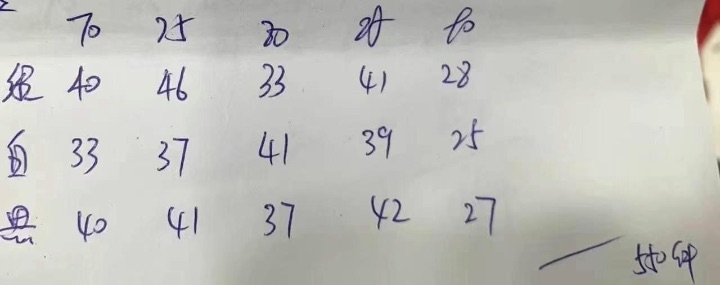 70 75 80 85
40 46 33 41 28
白 33 37 41 39 25
黑 40 41 37 42 27
550